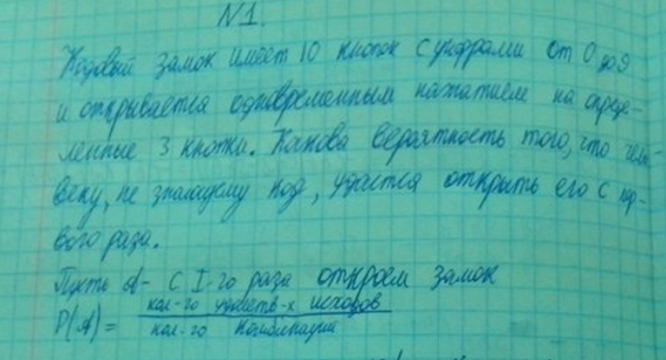 N1.
Кодовый замок имеет 10 кнопок с цифрами от 0 до 9
и открывается одновременным нажатием на опреде-
ленные 3 кнопки. Какова вероятность того, что чело-
веку, не знающему код, удастся открыть его с пер-
вого раза.
Пусть A - с I-го раза откроем замок
P(A) = кол-го удовлетв-х исходов
кол-го комбинаций